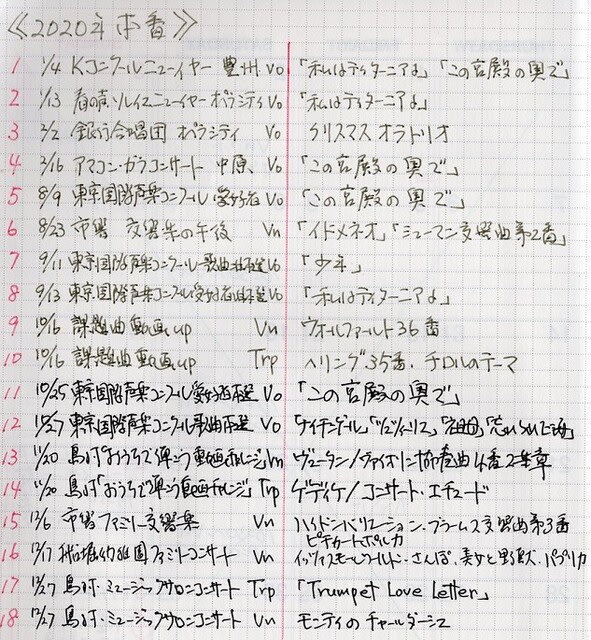 《2020年 本番》
1 1/4 Kコンクールニューイヤー 豊洲 Vo 「私はティターニアよ」「この宮殿の奥で」
2 1/13 春の声ソレイユニューイヤー オペラシティ Vo 「私はティターニアよ」
3 2/2 銀行合唱団 オペラシティ Vo クリスマス オラトリオ
4 2/16 アマコン・ガラコンサート 中原 Vo 「この宮殿の奥で」
5 8/9 東京国際声楽コンクール 愛好者 Vo 「この宮殿の奥で」
6 8/23 市響 交響楽の午後 Vn 「イドメネオ」「シューマン交響曲第2番」
7 9/11 東京国際声楽コンクール歌曲 Vo 「少年」
8 9/13 東京国際声楽コンクール愛好者 Vo 「私はティターニアよ」
9 10/16 課題曲動画up Vn ウォールファールト36番
10 10/16 課題曲動画up Trp ヘリング35番・チロルのテーマ
11 10/25 東京国際声楽コンクール愛好者本選 Vo 「この宮殿の奥で」
12 10/27 東京国際声楽コンクール歌曲本選 Vo 「ナイチンゲール」
13 11/20 島村「おうちで弾こう動画チャレンジ」Vn ヴュータン/ヴァイオリン協奏曲4番2楽章
14 11/20 島村「おうちで弾こう動画チャレンジ」Trp ゲディケ/コンサート・エチュード
15 12/6 市響ファミリー交響楽 Vn ハイドンバリエーション・ブラームス交響曲第3番
ピチカートポルカ
16 12/17 幼稚園ファミリーコンサート Vn イッツスモールワールド・さんぽ・美女と野獣・パプリカ
17 12/27 島村・ミュージックサロンコンサート Trp 「Trumpet Love Letter」
18 12/27 島村・ミュージックサロンコンサート Vn モンティのチャールダーシュ